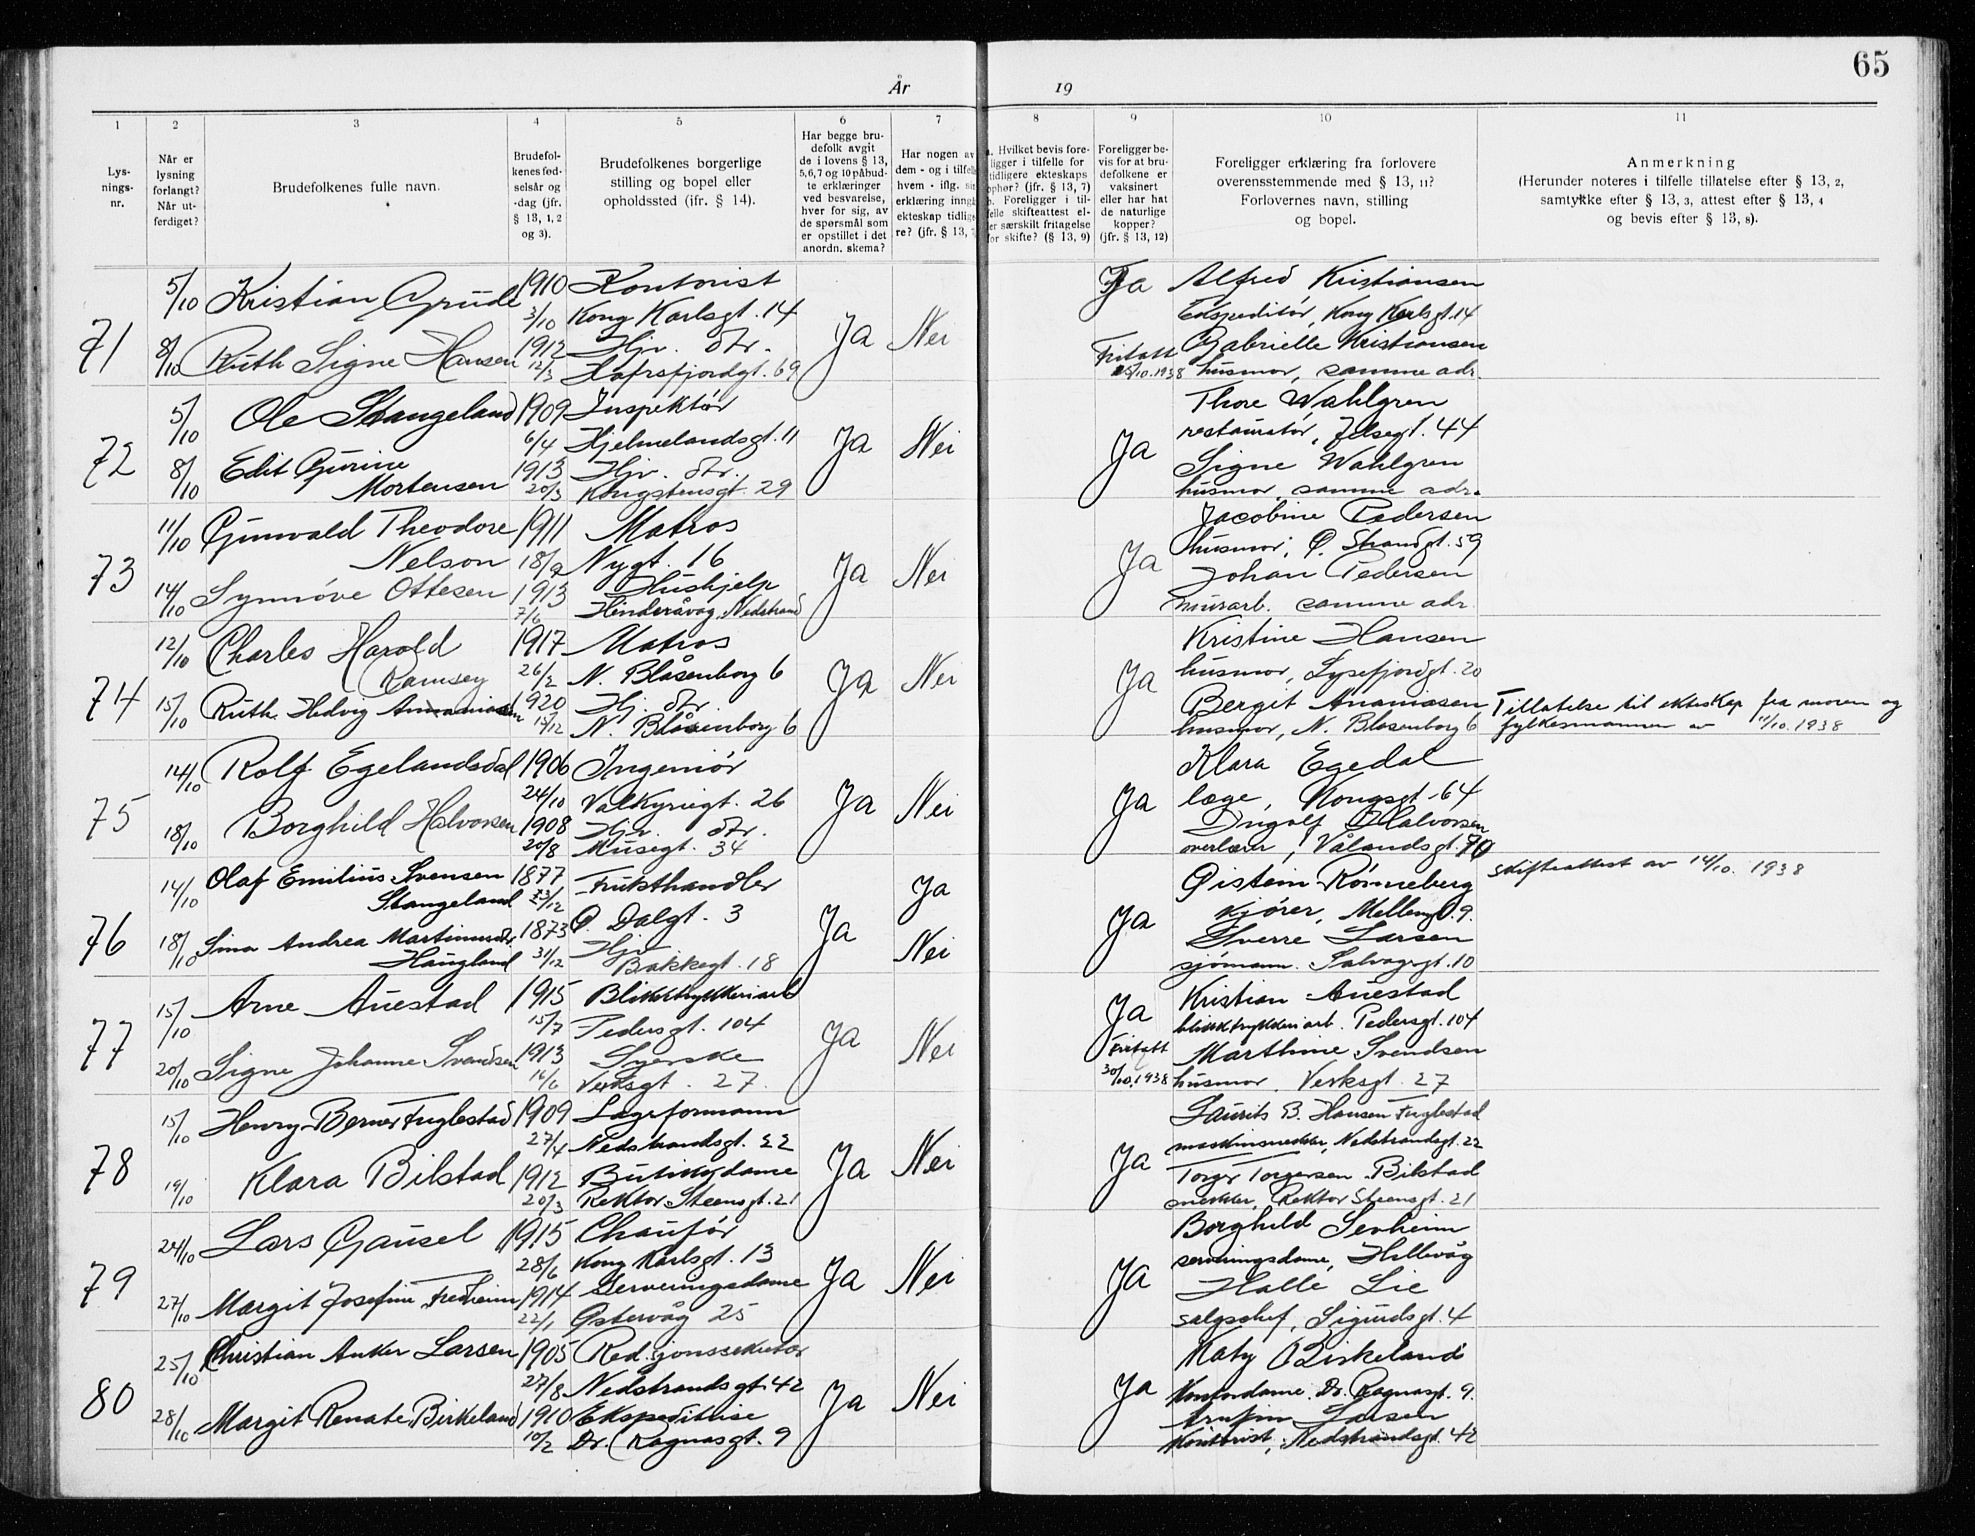 65
År 19
1 2 3 4 5 6 7 8 9 10 11
Lys-
nings-
nr.
Når er
lysning
forlangt?
Når ut-
ferdiget?
Brudefolkenes fulle navn.
Brudefol-
kenes fød-
selsår og
-dag (jfr.
§ 13, 1, 2
og 3).
Brudefolkenes borgerlige
stilling og bopel eller
opholdssted (ifr. § 14).
Har begge bru-
defolk avgit
de i lovens § 13,
5,6,7 og 10 påbud-
te erklæringer
ved besvarelse,
hver for sig, av
de spørsmål som
er opstillet i det
anordn. skema?
Har nogen av
dem - og i tilfelle
hvem - iflg. sin
erklæring inngå
ekteskap tidlige-
re? (jfr. § 13, 7
a. Hvilket bevis fore-
ligger i tilfelle for
tidligere ekteskaps
ophør? (jfr. § 13, 7)
b. Foreligger i til-
felle skifteattest el-
ler særskilt fritagelse
for skifte? (§ 13, 9)
Foreligger be-
vis for at bru-
defolkene er
vaksinert
eller har hat
de naturlige
kopper?
(jfr. § 13, 12)
Foreligger erklæring fra forlovere
overensstemmende med § 13, 11?
Forlovernes navn, stilling
og bopel.
Anmerkning
(Herunder noteres i tilfelle tillatelse efter § 13, 2,
samtykke efter § 13, 3, attest efter § 13, 4
og bevis efter § 13, 8).
71 5/10 Kristian Grude 1910 Kontorist Ja Nei Ja Alfred Kristiansen
3/10 Kong Karlsgt. 14 Ekspeditør, Kong Karlsgt. 14
8/10 Ruth Signe Hansen 1912 Hjv. dtr. Fritatt Gabrielle Kristiansen
12/3 Hafrsfjordgt. 69 25/10.1938 husmor, samme adr.
72 5/10 Ole Stangeland 1909 Inspektør Ja Nei Ja Thore Wahlgren
6/4 Hjelmelandsgt. 11 restauratør, Jelsegt. 44
8/10 Edit Gurine 1913 Hjv. dtr. Signe Wahlgren
Mortensen 20/3 Kongstensgt. 29 husmor, samme adr.
73 11/10 Gunvald Theodore 1911 Matros Ja Nei Ja Jacobine Pedersen
Nelson 18/9 Nygt. 16 husmor, Ø. Strandgt. 59
14/10 Synnøve Ottesen 1913 Hushjelp Johan Pedersen
7/6 Hinderåvåg, Nedstrand murarb. samme adr.
74 12/10 Charles Harold 1917 Matros Ja Nei Ja Kristine Hansen
Ramsey 26/2 N. Blåsenborg 6 husmor, Lysefjordgt. 20
15/10 Ruth Hedvig Ananiasen 1920 Hj. dtr. Bergit Ananiasen Tillatelse til ekteskap fra moren og
15/12 N. Blåsenborg 6 husmor, N. Blåsenborg 6 fylkesmannen av 11/10. 1938
75 14/10 Rolf Egelandsdal 1906 Ingeniør Ja Nei Ja Klara Egedal
24/10 Valkyriegt. 26 læge, Kongsgt. 64
18/10 Borghild Halvorsen 1908 Hjv. dtr. Ingolf Halvorsen
20/8 Musegt. 34 overlærer, Vålandsgt. 70
76 14/10 Olaf Emilius Svensen 1877 Frukthandler Ja Ja Ja Øistein Rønneberg skifteattest av 14/10. 1938
Stangeland 23/12 Ø. Dalgt. 3 kjører, Mellemgt. 9.
18/10 Sina Andrea Martinusdtr. 1873 Hjv. Nei Sverre Larsen
Haugland 31/12 Bakkegt. 18 sjømann. Salvagergt. 10
77 15/10 Arne Auestad 1915 Blikktrykkeriarb Ja Nei Ja Kristian Auestad
15/7 Pedersgt. 104 blikktrykkeriarb. Pedersgt. 104
20/10 Signe Johanne Svendsen 1913 Syerske Fritatt Marthine Svendsen
16/6 Verksgt. 27. 30/10.1938 husmor. Verksgt. 27
78 15/10 Henry Berner Fuglestad 1909 Lagerformann Ja Nei Ja Laurits B. Hansen Fuglestad
27/4 Nedstrandsgt. 22 maskinsnekker, Nedstrandsgt. 22
19/10 Klara Bilstad 1912 Butikkdame Torger Torgersen Bilstad
20/3 Rektor Steensgt. 21 snekker, Rektor Steensgt. 21
79 24/10 Lars Gausel 1915 Chauffør Ja Nei Ja Borghild Sevheim
28/6 Kong Karlsgt. 13 serveringsdame, Hillevåg
27/10 Margit Josefine Fredheim 1914 Serveringsdame Halle Lie
22/1 Østervåg 25 salgschef, Sigurdsgt. 4
80 25/10 Christian Anker Larsen 1905 Red.sjonssekretær Ja Nei Ja Katy Birkeland
27/8 Nedstrandsgt. 42 Kontordame. Dr. Ragnasgt. 9.
28/10 Margit Renate Birkeland 1910 Ekspeditrise Larsen
10/2 Dr. Ragnasgt. 9 Kontorist, Nedstrandsgt. 42